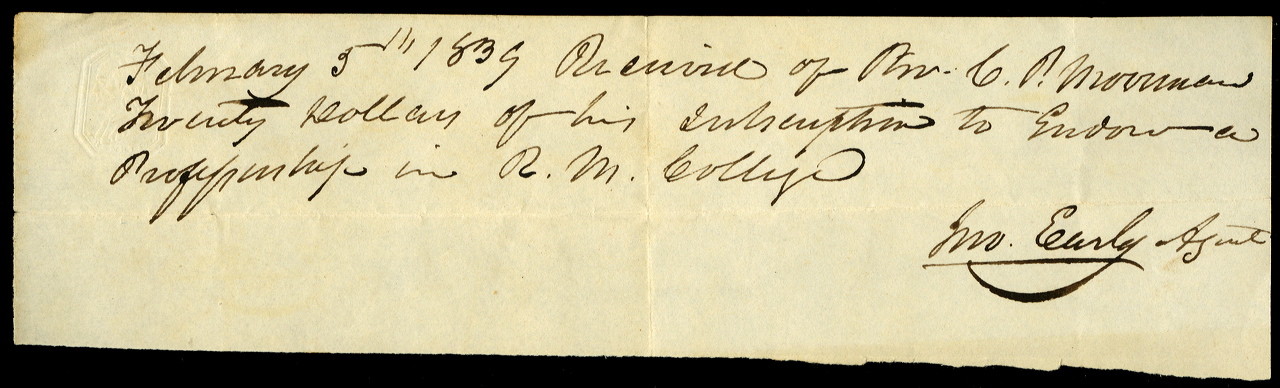 February 5th 1839 Received of Rev. C. P. Moorman
Twenty Dollars of his subscription to Endow a
Professorship in R. M. College
Jno. Early Agent